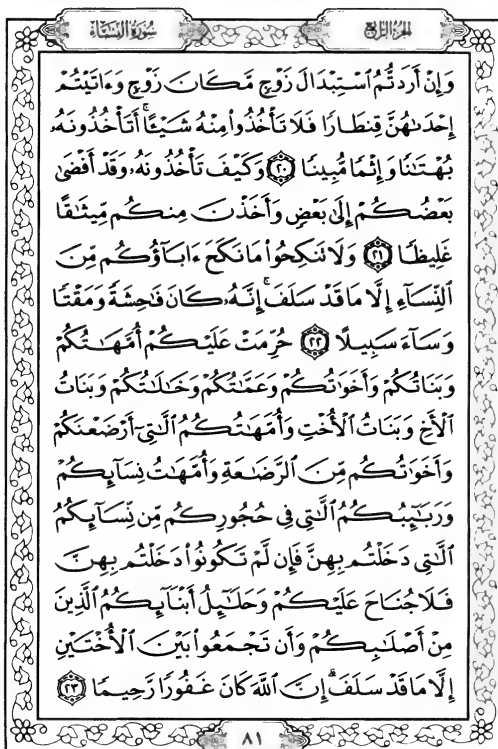 سُورَةُ النِّسَاءِ
الجُزْءُ الرَّابِعُ
وَإِنْ أَرَدتُّمُ ٱسْتِبْدَالَ زَوْجٍ مَّكَانَ زَوْجٍ وَءَاتَيْتُمْ
إِحْدَىٰهُنَّ قِنطَارًا فَلَا تَأْخُذُوا۟ مِنْهُ شَيْـًٔا ۚ أَتَأْخُذُونَهُۥ
بُهْتَٰنًا وَإِثْمًا مُّبِينًا ﴿٢٠﴾ وَكَيْفَ تَأْخُذُونَهُۥ وَقَدْ أَفْضَىٰ
بَعْضُكُمْ إِلَىٰ بَعْضٍ وَأَخَذْنَ مِنكُم مِّيثَٰقًا
غَلِيظًا ﴿٢١﴾ وَلَا تَنكِحُوا۟ مَا نَكَحَ ءَابَآؤُكُم مِّنَ
ٱلنِّسَآءِ إِلَّا مَا قَدْ سَلَفَ ۚ إِنَّهُۥ كَانَ فَٰحِشَةً وَمَقْتًا
وَسَآءَ سَبِيلًا ﴿٢٢﴾ حُرِّمَتْ عَلَيْكُمْ أُمَّهَٰتُكُمْ
وَبَنَاتُكُمْ وَأَخَوَٰتُكُمْ وَعَمَّٰتُكُمْ وَخَٰلَٰتُكُمْ وَبَنَاتُ
ٱلْأَخِ وَبَنَاتُ ٱلْأُخْتِ وَأُمَّهَٰتُكُمُ ٱلَّٰتِىٓ أَرْضَعْنَكُمْ
وَأَخَوَٰتُكُم مِّنَ ٱلرَّضَٰعَةِ وَأُمَّهَٰتُ نِسَآئِكُمْ
وَرَبَٰٓئِبُكُمُ ٱلَّٰتِى فِى حُجُورِكُم مِّن نِّسَآئِكُمُ
ٱلَّٰتِى دَخَلْتُم بِهِنَّ فَإِن لَّمْ تَكُونُوا۟ دَخَلْتُم بِهِنَّ
فَلَا جُنَاحَ عَلَيْكُمْ وَحَلَٰٓئِلُ أَبْنَآئِكُمُ ٱلَّذِينَ
مِنْ أَصْلَٰبِكُمْ وَأَن تَجْمَعُوا۟ بَيْنَ ٱلْأُخْتَيْنِ
إِلَّا مَا قَدْ سَلَفَ ۗ إِنَّ ٱللَّهَ كَانَ غَفُورًا رَّحِيمًا ﴿٢٣﴾
٨١